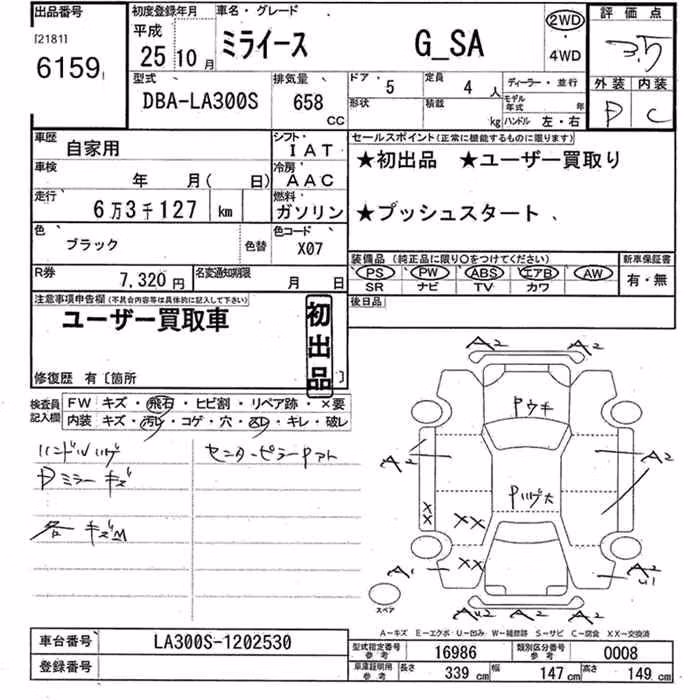 出品番号
[2181]
6159
初度登録年月
平成
25年10月
車名・グレード
ミライース G_SA
2WD
・
4WD
評価点
3.5
外装 内装
D C
型式
DBA-LA300S
排気量
658
CC
ドア
5
定員
4人
形状
積載
kg
ディーラー・並行
モデル年式 年
ハンドル 左・右
車歴
自家用
シフト
IAT
車検
年 月( 日)
冷房
AAC
走行
6万3千127 km
燃料
ガソリン
色
ブラック
色替
色コード
X07
R券
7,320円
名変通知期限
月 日
セールスポイント(正常に機能するものに限ります)
★初出品 ★ユーザー買取り
★プッシュスタート
装備品 (純正品に限り○をつけてください)
PS PW ABS エアB AW
SR ナビ TV カワ
新車保証書
有・無
後日品
注意事項申告欄(不具合内容等は具体的に記入して下さい)
ユーザー買取車
初出品
修復歴 有〔箇所 〕
検査員記入欄
FW キズ・飛石・ヒビ割・リペア跡・×要
内装 キズ・汚レ・コゲ・穴・凹・キレ・破レ
ハンドルハゲ
センターピラーPアト
Dミラーキズ
各キズM
A2 A2
Pウキ
A2 A2
Pハゲ大
XX
XX
XX
A1 A2
U1
AU2 A2
スペア
A-キズ E-エクボ U-凹み W-補修跡 S-サビ C-腐食 XX-交換済
車台番号
LA300S-1202530
登録番号
型式指定番号 参考
16986
類別区分番号 参考
0008
車庫証明用 参考
長さ 339cm 幅 147cm 高さ 149cm